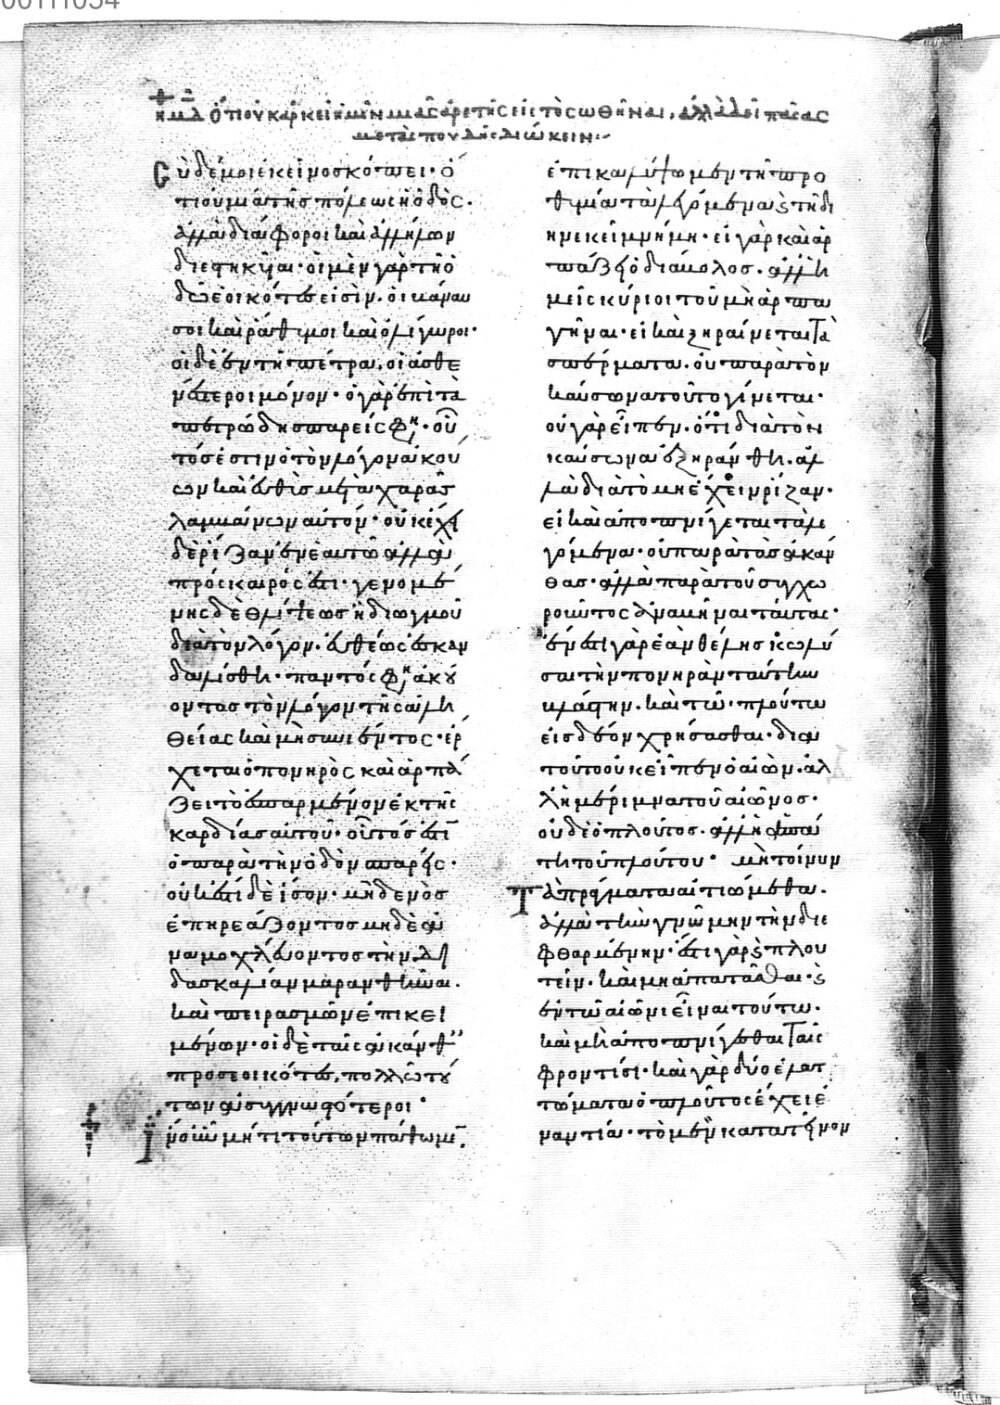 ὅτι οὐκ ἀρκεῖ ἡμῖν μιᾶς ἀρετῆς εἰς τὸ σωθῆναι, ἀλλὰ δεῖ πάσας
μετὰ σπουδῆς διώκειν
Σὺ δέ μοι ἐκεῖνο σκόπει· ὅ
τι οὐ μία τῆς πόλεως ἡ ὁδός·
ἀλλὰ διάφοροι καὶ ἀλλήλων
διεστηκυῖαι· οἱ μὲν γὰρ τῇ ὁ
δῷ ἐοικότες εἰσὶν· οἱ βάναυ
σοι καὶ ῥάθυμοι καὶ ὀλίγωροι·
οἱ δὲ ἐν τῇ πέτρα, οἱ ἀσθε
νέστεροι μόνον· ὁ γὰρ ἐπὶ τὰ
πετρώδη σπαρείς φη· οὗ
τός ἐστιν ὁ τὸν λόγον ἀκού
ων καὶ εὐθὺς μετὰ χαρᾶς
λαμβάνων αὐτόν· οὐκ ἔχει
δὲ ῥίζαν ἐν ἑαυτῶ ἀλλὰ
πρόσκαιρός ἐστι· γενομέ
νης δὲ θλίψεως ἢ διωγμοῦ
διὰ τὸν λόγον· εὐθέως σκαν
δαλίσθη· παντός φη ἀκού
οντος τὸν λόγον τῆς ἀλη
θείας καὶ μὴ συνιέντος· ἔρ
χεται ὁ πονηρὸς καὶ ἁρπά
ζει τὸ ἐσπαρμένον ἐκ τῆς
καρδίας αὐτοῦ· οὗτός ἐστιν
ὁ παρὰ τὴν ὁδὸν σπαρείς·
οὐκ ἔστι δὲ ἴσον· μηδενὸς
ἐπηρεάζοντος μηδὲ
ἀναμοχλεύοντος τὴν δι
δασκαλίαν μαρανθῆναι·
καὶ πειρασμῶν ἐπικει
μένων· οἱ δὲ ταῖς ἀκάνθαις
προσεοικότες, πολλῶ τού
των ἀσυγγνωστότεροι·
Ἵν' οὖν μή τι τούτων πάθωμεν
ἐπικαλύψωμεν τῇ προ
θυμία τὰ λεγόμενα καὶ τῇ δι
ηνεκεῖ μνήμη· εἰ γὰρ καὶ ἁρ
πάζει ὁ διάβολος· ἀλλ' ἡ
μεῖς κύριοι τοῦ μὴ ἁρπα
γῆναι· εἰ καὶ ξηραίνεται τὰ
σπέρματα· οὐ παρὰ τὸν
καύσωνα τοῦτο γίνεται·
οὐ γὰρ εἶπεν· ὅτι διὰ τὸν
καύσωνα ἐξηράνθη· ἀλ
λὰ διὰ τὸ μὴ ἔχειν ῥίζαν·
εἰ καὶ ἀποπνίγεται τὰ λε
γόμενα· οὐ παρὰ τὰς ἀκάν
θας· ἀλλὰ παρὰ τοὺς συγχω
ροῦντας ἀναβῆναι ταύτας·
ἔνεστι γὰρ ἐὰν θέλης κωλῦ
σαι τὴν πονηρὰν ταύτην
βλάστην· καὶ τῶ πλούτω
εἰς δέον χρήσασθαι· διὰ
τοῦτο οὐκ εἶπεν ὁ αἰών· ἀλ
λ' ἡ μέριμνα τοῦ αἰῶνος·
οὐδὲ ὁ πλοῦτος· ἀλλ' ἡ ἀπά
τη τοῦ πλούτου· μὴ τοίνυν
τὰ πράγματα αἰτιώμεθα·
ἀλλὰ τὴν γνώμην τὴν διε
φθαρμένην· ἔστι γὰρ καὶ πλου
τεῖν· καὶ μὴ ἀπατᾶσθαι· καὶ
ἐν τῶ αἰῶνι εἶναι τούτω·
καὶ μὴ ἀποπνίγεσθαι ταῖς
φροντίσι· καὶ γὰρ δύο ἐλατ
τώματα ὁ πλοῦτος ἔχει ἐ
ναντία· τὸ μὲν κατατεῖνον